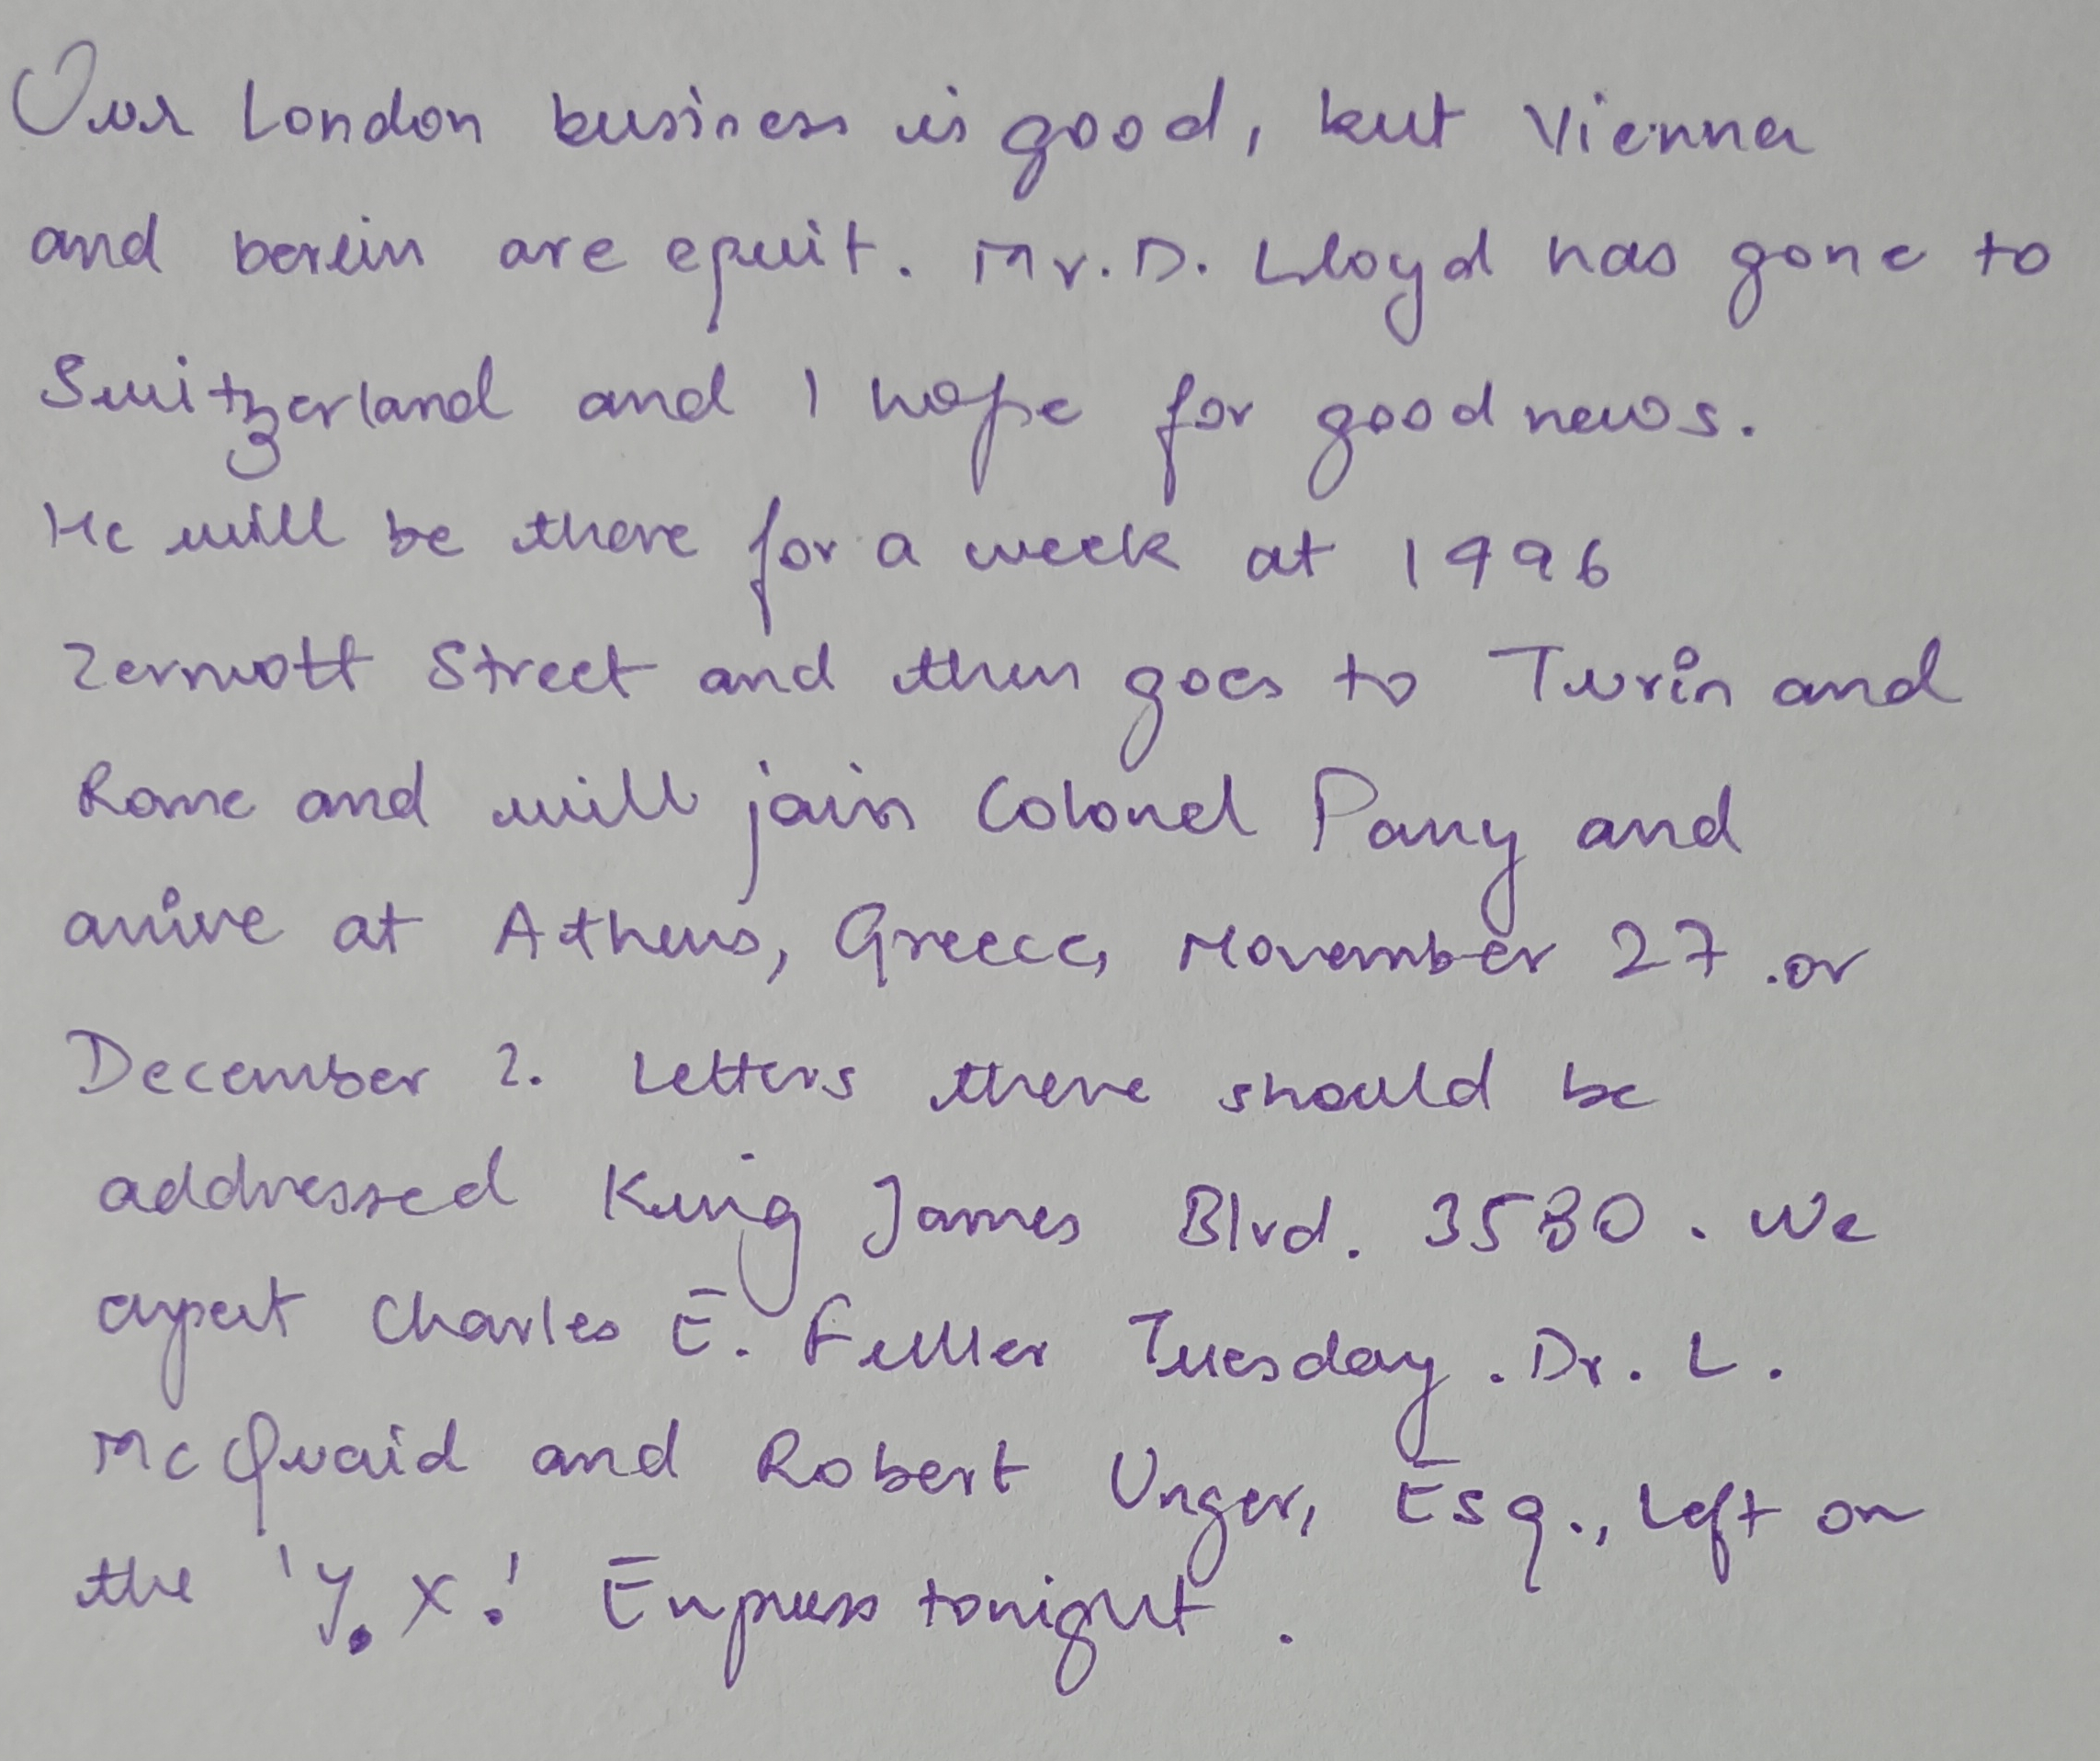 Our London business is good, but Vienna
and berlin are quit. Mr. D. Lloyd has gone to
Switzerland and I hope for good news.
He will be there for a week at 1996
Zermott Street and then goes to Turin and
Rome and will join Colonel Parry and
arrive at Athens, Greece, November 27 or
December 2. Letters there should be
addressed King James Blvd. 3580. We
expect Charles E. Fuller Tuesday. Dr. L.
McQuaid and Robert Unger, Esq., left on
the 'Y. X.' Express tonight.